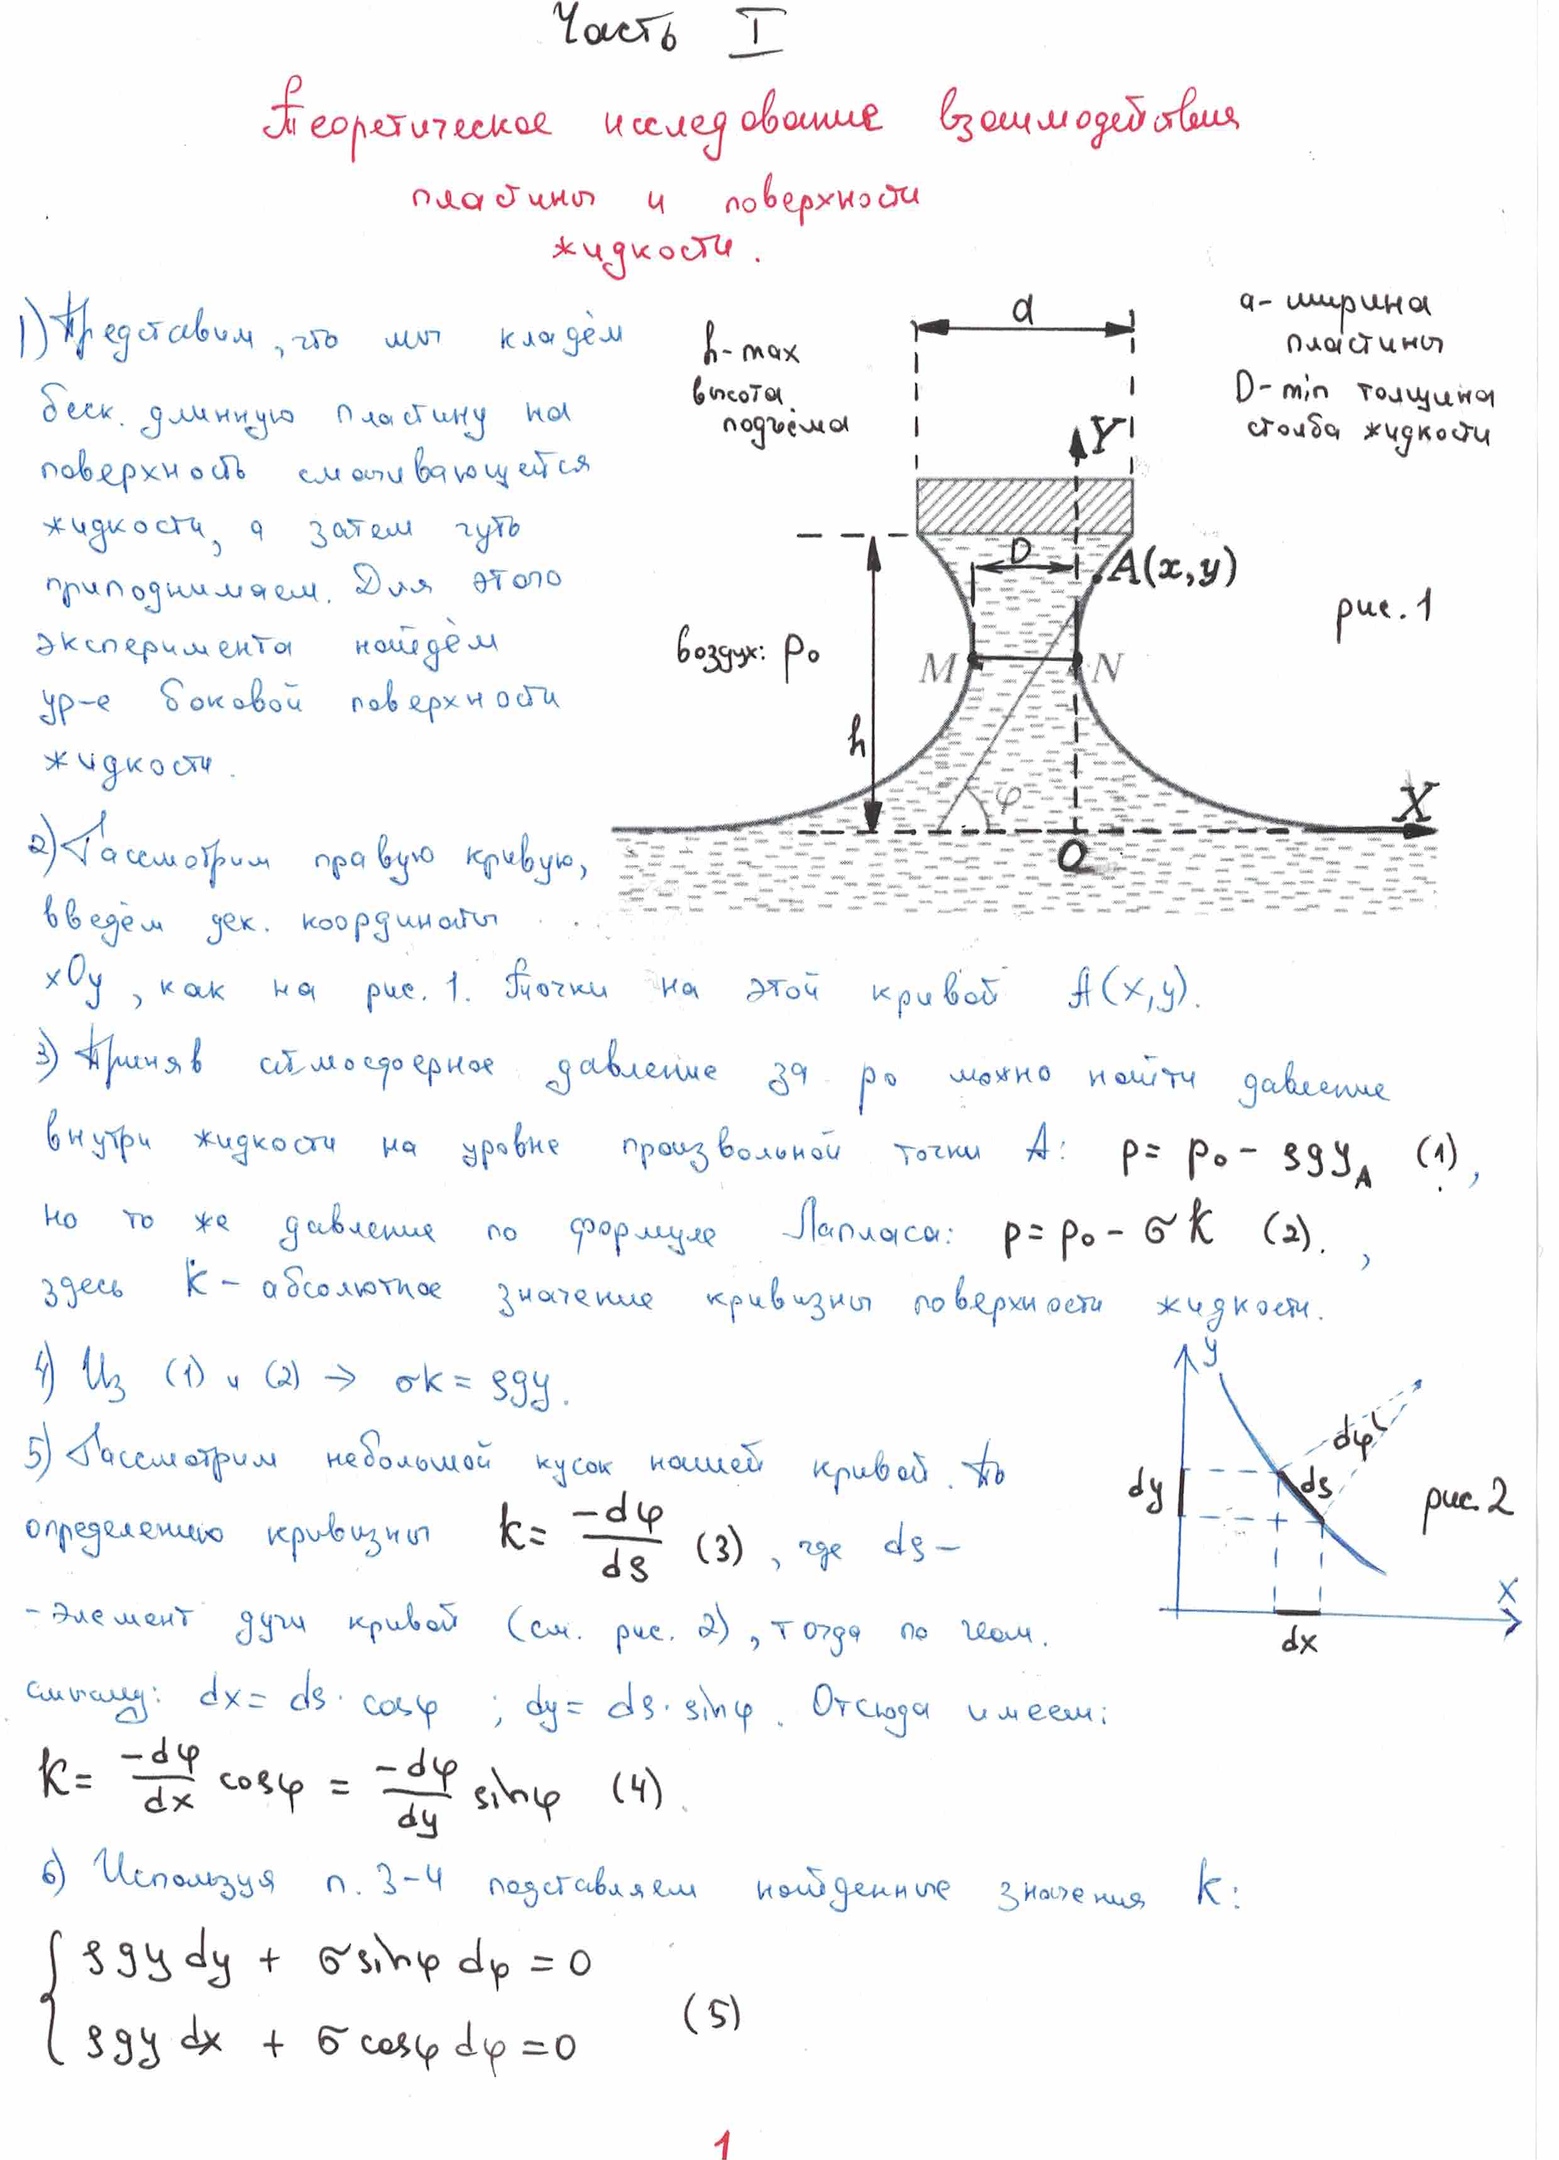 Часть I
Теоретическое исследование взаимодействия
пластины и поверхности
жидкости.
1) Представим, что мы кладём
беск. длинную пластину на
поверхность смачивающейся
жидкости, а затем чуть
приподнимаем. Для этого
эксперимента найдём
ур-е боковой поверхности
жидкости.
h - max
высота
подъёма
a
a - ширина
пластины
D - min толщина
столба жидкости
Y
D
A(x,y)
рис. 1
воздух: p₀
M
N
h
φ
X
O
2) Рассмотрим правую кривую,
введём дек. координаты
xOy, как на рис. 1. Точки на этой кривой A(x,y).
3) Приняв атмосферное давление за p₀ можно найти давление
внутри жидкости на уровне произвольной точки A: p = p₀ - ρgy_A (1),
но то же давление по формуле Лапласа: p = p₀ - σk (2).,
здесь k - абсолютное значение кривизны поверхности жидкости.
4) Из (1) и (2) → σk = ρgy.
5) Рассмотрим небольшой кусок нашей кривой. По
определению кривизны k = -dφ/ds (3), где ds -
- элемент дуги кривой (см. рис. 2), тогда по геом.
смыслу: dx = ds · cosφ ; dy = ds · sinφ. Отсюда имеем:
k = -dφ/dx cosφ = -dφ/dy sinφ (4).
y
dφ
ds
dy
рис. 2
x
dx
6) Используя п. 3-4 подставляем найденные значения k:
ρgy dy + σ sinφ dφ = 0
ρgy dx + σ cosφ dφ = 0
(5)
1